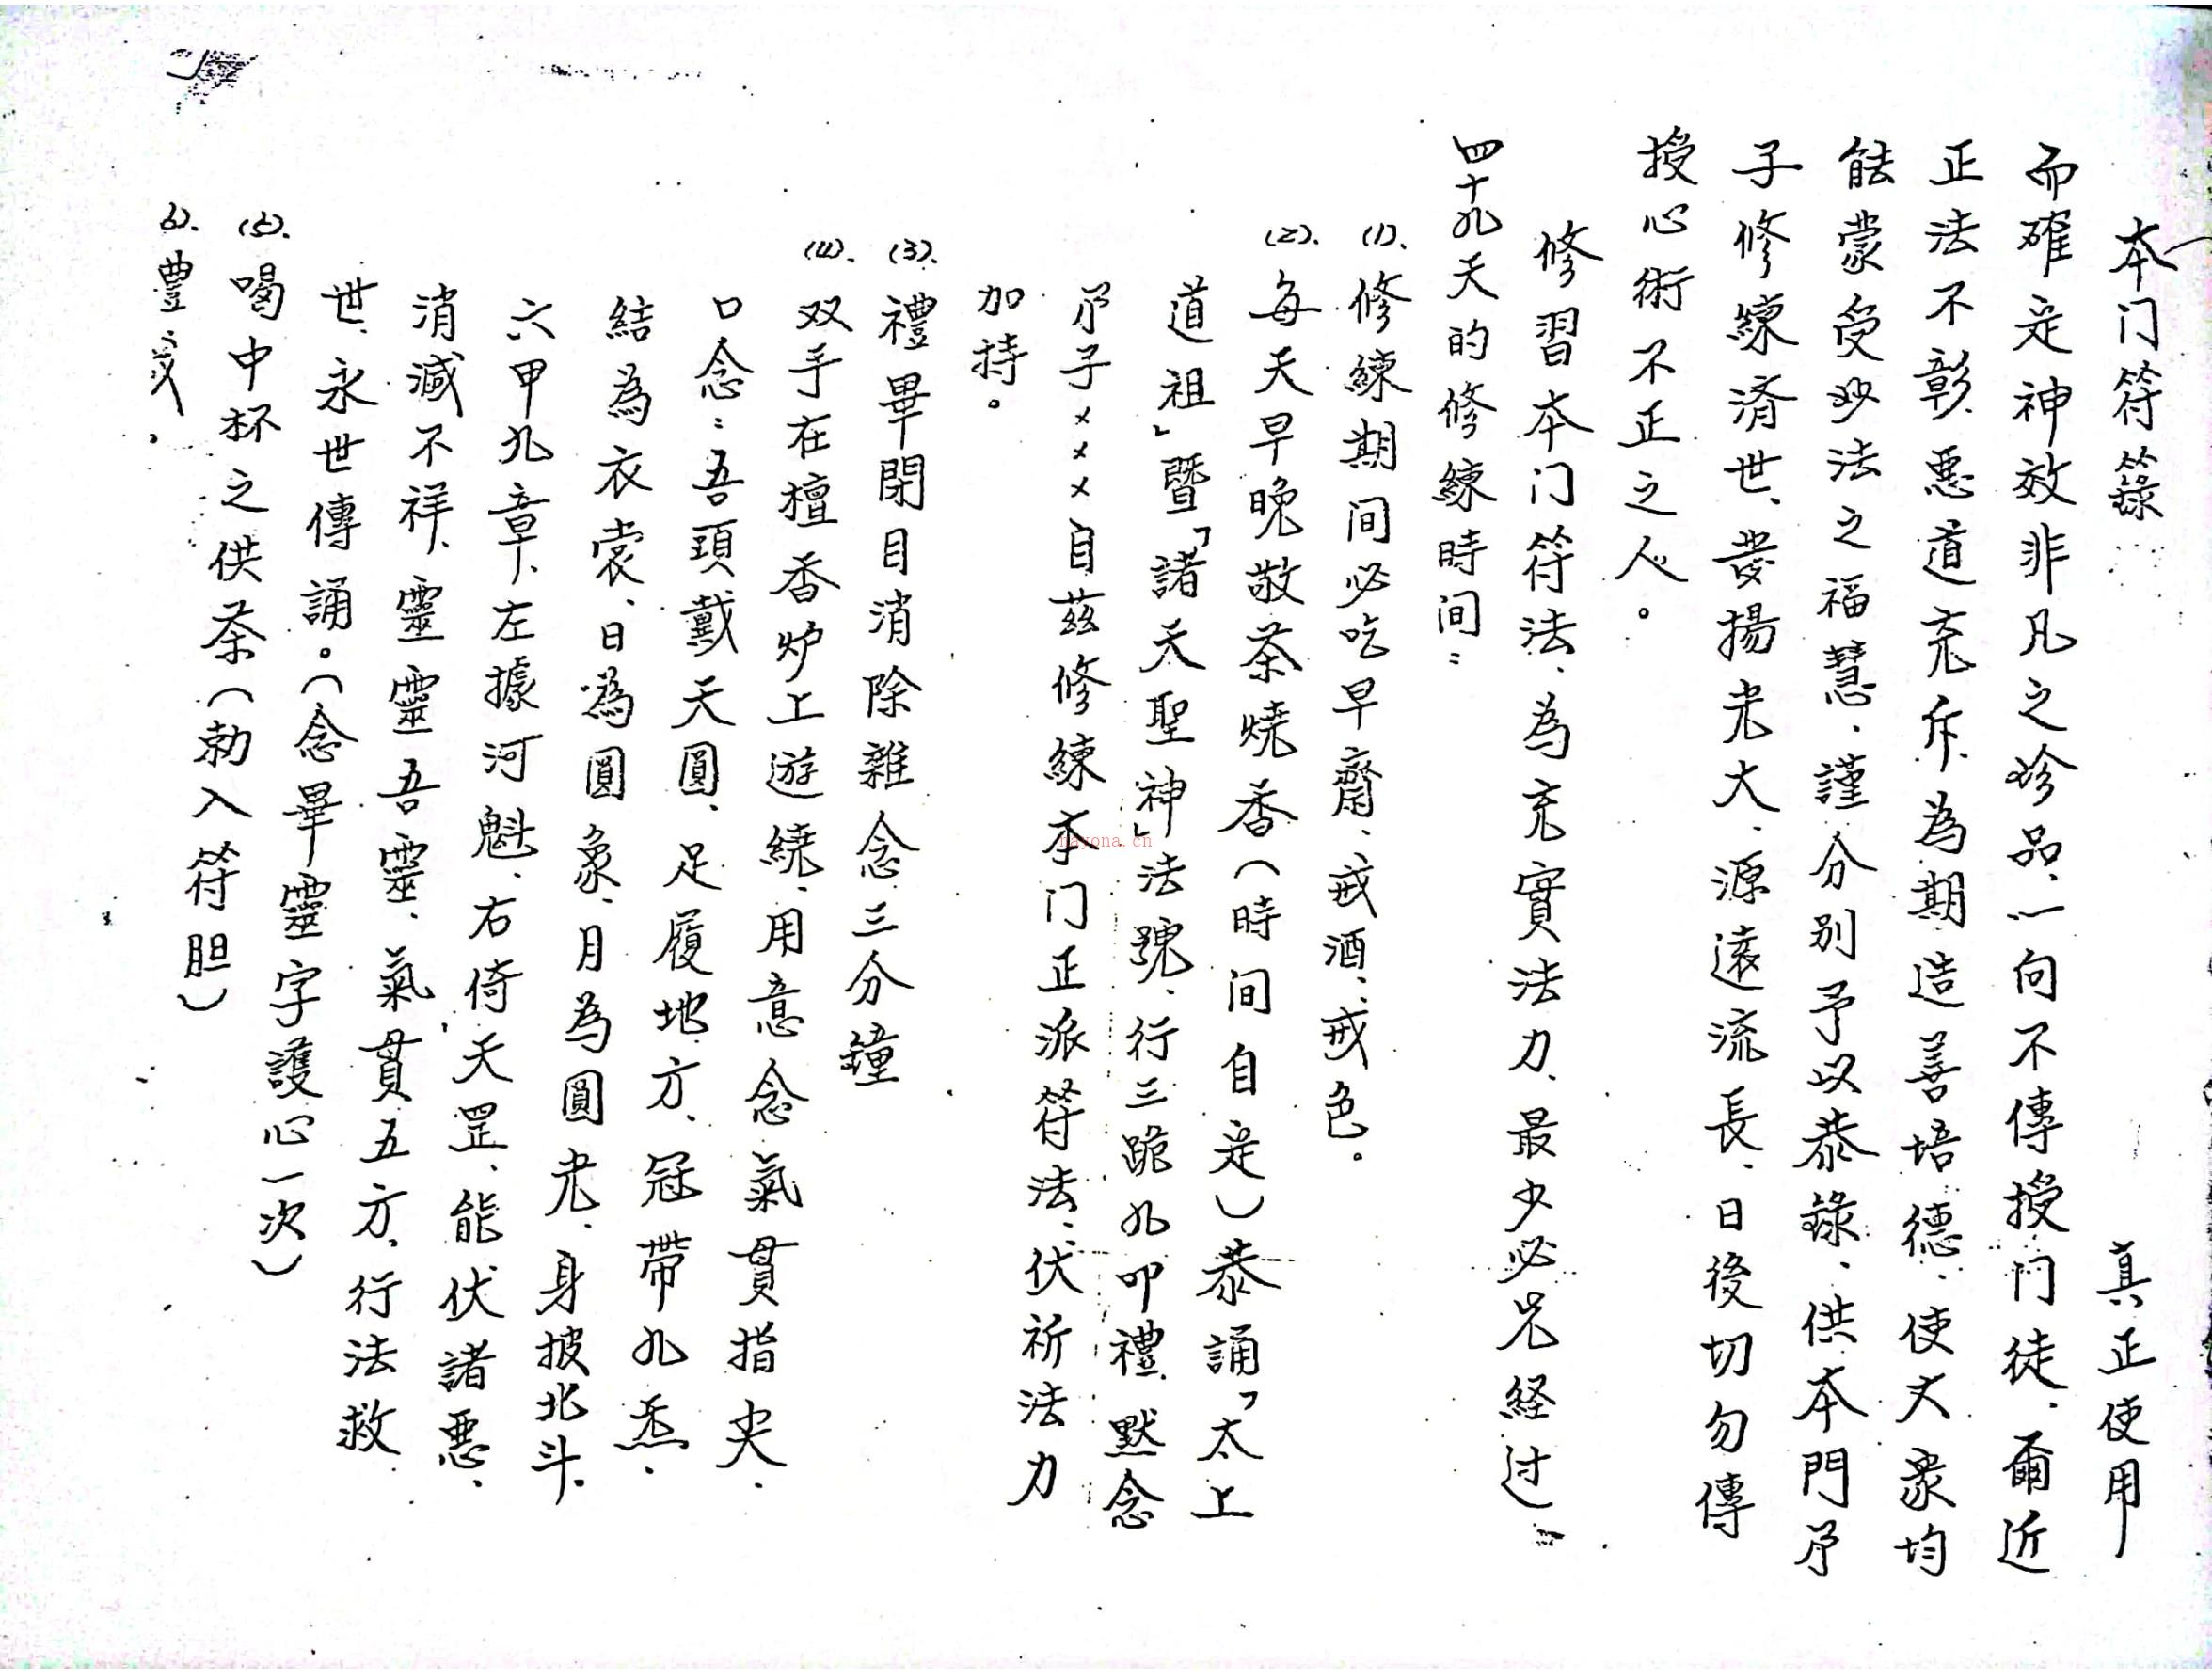 本门符籙　　　　　真正使用
而確是神效非凡之珍品、一向不傳授门徒、爾近
正法不彰、悪道充斥、為期造善培德、使大衆均
能蒙受妙法之福慧、謹分别予以恭錄、供本門弟
子修練濟世、發揚光大、源遠流長、日後切勿傳
授心術不正之人。
修習本门符法、為充實法力、最少必先経过
四十九天的修練時间：
(1)、修練期间必吃早齋、戒酒、戒色。
(2)、每天早晚敬茶燒香（時间自定）恭誦「太上
道祖」暨「諸天聖神」法號、行三跪九叩禮、黙念
弟子×××自茲修練本门正派符法、伏祈法力
加持。
(3)、禮畢閉目消除雜念三分鐘
(4)、双手在檀香炉上遊繞、用意念氣貫指尖、
口念：吾頭戴天圓、足履地方、冠帶九炁、
結為衣裳、日為圓象、月為圓光、身披北斗、
六甲九章、左據河魁、右倚天罡、能伏諸悪、
消減不祥、靈靈吾靈、氣貫五方、行法救
世、永世傳誦。（念畢靈字護心一次）
(5)、喝中杯之供茶（勅入符胆）
6)、豊成。
nayona.cn